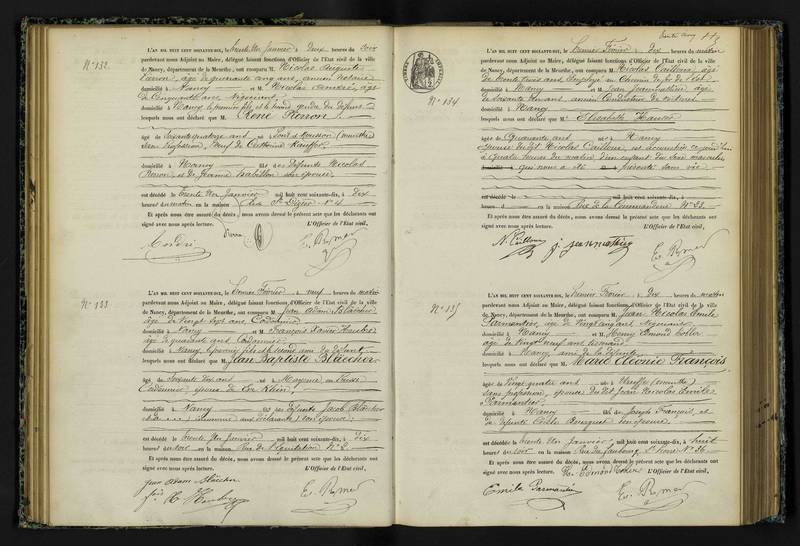 N° 132.
L'AN MIL HUIT CENT SOIXANTE-DIX, le trente un Janvier à deux heures du soir
pardevant nous Adjoint au Maire, délégué faisant fonctions d'Officier de l'Etat civil de la ville
de Nancy, département de la Meurthe, ont comparu M. Nicolas Auguste
Pierron, âgé de quarante cinq ans, ancien notaire
domicilié à Nancy et M. Nicolas Cendré, âgé
de Cinquante ans, Négociant
domicilié à Nancy, le premier fils, et le second gendre du défunt
lesquels nous ont déclaré que M. René Pierron
âgé de soixante quatorze ans né à Pont à Mousson (meurthe)
sans profession, Veuf de Catherine
domicilié à Nancy fils des défunts Nicolas
Pierron, et de Jeanne son épouse,
est décédé le trente un Janvier mil huit cent soixante-dix, à dix
heures du matin en la maison Rue St. Dizier N° 4
Et après nous être assuré du décès, nous avons dressé le présent acte que les déclarants ont
signé avec nous après lecture. L'Officier de l'Etat civil,
Pierron
Cendré
N° 133
L'AN MIL HUIT CENT SOIXANTE-DIX, le premier Février à neuf heures du matin
pardevant nous Adjoint au Maire, délégué faisant fonctions d'Officier de l'Etat civil de la ville
de Nancy, département de la Meurthe, ont comparu M. Jean Adam Blaicher
âgé de vingt sept ans, Cordonnier
domicilié à Nancy et M. François Xavier
âgé de quarante ans, Cordonnier
domicilié à Nancy, le premier fils et le second ami du défunt
lesquels nous ont déclaré que M. Jean Baptiste Blaicher
âgé de soixante dix ans né à Mayence en Prusse
Cordonnier, époux de Eve Klein,
domicilié à Nancy fils des défunts Jacob Blaicher
et de (inconnue aux déclarants) son épouse,
est décédé le trente un Janvier mil huit cent soixante-dix, à dix
heures du soir en la maison Rue de l'équitation N° 2.
Et après nous être assuré du décès, nous avons dressé le présent acte que les déclarants ont
signé avec nous après lecture. L'Officier de l'Etat civil,
Jean Adam Blaicher
119
N° 134
L'AN MIL HUIT CENT SOIXANTE-DIX, le premier Février à dix heures du matin
pardevant nous Adjoint au Maire, délégué faisant fonctions d'Officier de l'Etat civil de la ville
de Nancy, département de la Meurthe, ont comparu M. Nicolas Cailloux, âgé
de trente trois ans, Employé au Chemin de fer de l'Est
domicilié à Nancy et M. Jean Jeanmathieu âgé
de soixante ans, ancien Conducteur de voitures
domicilié à Nancy
lesquels nous ont déclaré que M. Elisabeth
âgée de Quarante ans née à Nancy
épouse du dit Nicolas Cailloux, est accouchée ce jourd'hui
à quatre heures du matin d'un enfant du sexe masculin
qui nous a été présenté sans vie
est décédé le mil huit cent soixante-dix, à
heures d en la maison Rue de la Commanderie N° 33.
Et après nous être assuré du décès, nous avons dressé le présent acte que les déclarants ont
signé avec nous après lecture. L'Officier de l'Etat civil,
N. Cailloux J. Jeanmathieu
N° 135
L'AN MIL HUIT CENT SOIXANTE-DIX, le premier Février à dix heures du matin
pardevant nous Adjoint au Maire, délégué faisant fonctions d'Officier de l'Etat civil de la ville
de Nancy, département de la Meurthe, ont comparu M. Jean Nicolas Emile
Parmentier, âgé de vingt cinq ans Négociant
domicilié à Nancy et M. Henry Edmond
âgé de vingt neuf ans
domicilié à Nancy, ami de la défunte
lesquels nous ont déclaré que M. Marie Léonie François
âgée de vingt quatre ans née à (meurthe)
sans profession, épouse du dit Jean Nicolas Emile
Parmentier,
domiciliée à Nancy fille de Joseph François, et
de défunte son épouse,
est décédée le trente un Janvier mil huit cent soixante-dix, à huit
heures du soir en la maison Rue du faubourg St. Pierre N° 36
Et après nous être assuré du décès, nous avons dressé le présent acte que les déclarants ont
signé avec nous après lecture. L'Officier de l'Etat civil,
Emile Parmentier